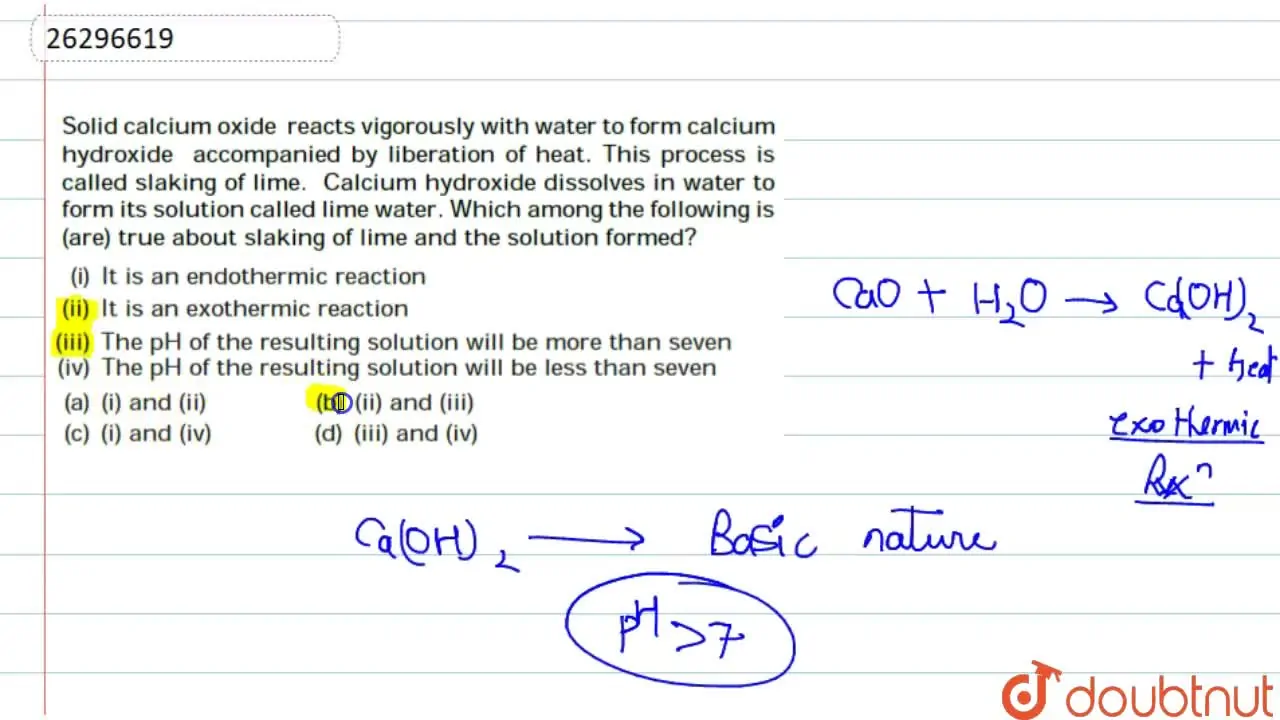 26296619
Solid calcium oxide reacts vigorously with water to form calcium
hydroxide accompanied by liberation of heat. This process is
called slaking of lime. Calcium hydroxide dissolves in water to
form its solution called lime water. Which among the following is
(are) true about slaking of lime and the solution formed?
(i) It is an endothermic reaction
(ii) It is an exothermic reaction
(iii) The pH of the resulting solution will be more than seven
(iv) The pH of the resulting solution will be less than seven
(a) (i) and (ii) (b) (ii) and (iii)
(c) (i) and (iv) (d) (iii) and (iv)
CaO + H₂O → Ca(OH)₂
+ heat
exothermic
Rxⁿ
Ca(OH)₂ → Basic nature
pH > 7
doubtnut